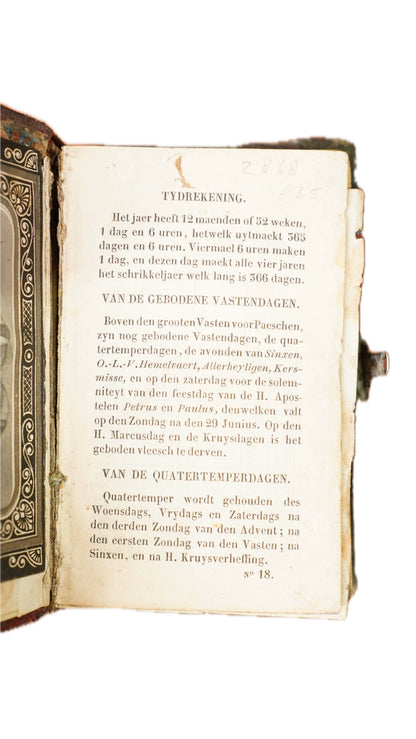 2868
£35
TYDREKENING.
Het jaer heeft 12 maenden of 52 weken,
1 dag en 6 uren, hetwelk uytmaekt 365
dagen en 6 uren. Viermael 6 uren maken
1 dag, en dezen dag maekt alle vier jaren
het schrikkeljaer welk lang is 366 dagen.
VAN DE GEBODENE VASTENDAGEN.
Boven den grooten Vasten voor Paeschen,
zyn nog gebodene Vastendagen, de qua-
tertemperdagen, de avonden van Sinxen,
O.-L.-V. Hemelvaert, Allerheyligen, Kers-
misse, en op den zaterdag voor de solem-
niteyt van den feestdag van de H. Apos-
telen Petrus en Paulus, denwelken valt
op den Zondag na den 29 Junius. Op den
H. Marcusdag en de Kruysdagen is het
geboden vleesch te derven.
VAN DE QUATERTEMPERDAGEN.
Quatertemper wordt gehouden des
Woensdags, Vrydags en Zaterdags na
den derden Zondag van den Advent; na
den eersten Zondag van den Vasten; na
Sinxen, en na H. Kruysverheffing.
Nº 18.